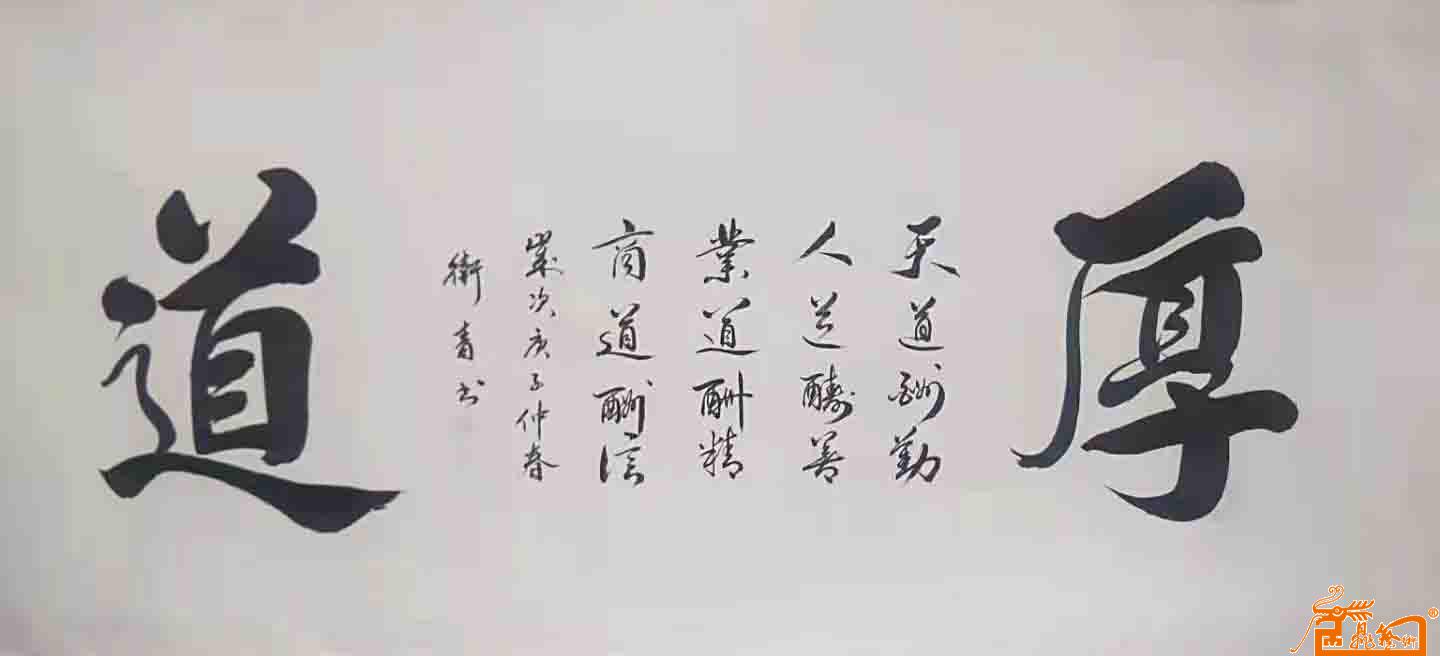 厚
天道酬勤
人道酬善
業道酬精
商道酬信
歲次庚子仲春
衛青书
道